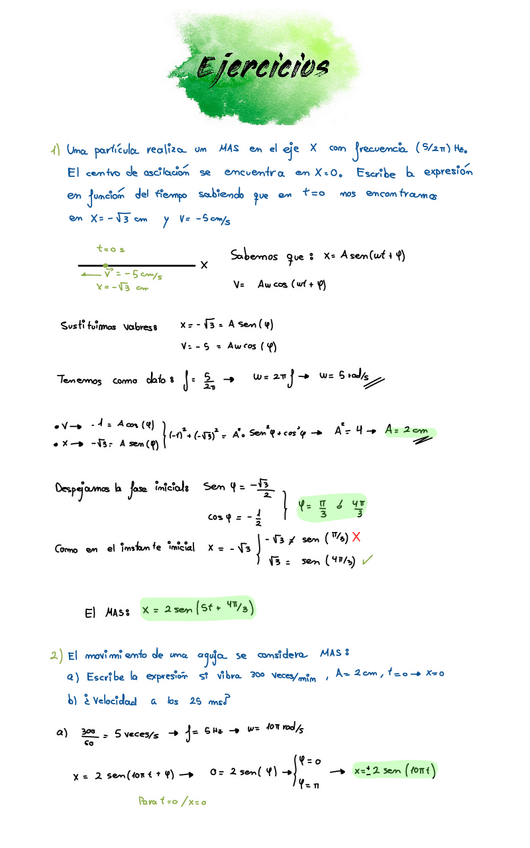 Ejercicios
1) Una partícula realiza un MAS en el eje X con frecuencia (5/2π) Hz.
El centro de oscilación se encuentra en X=0. Escribe la expresión
en función del tiempo sabiendo que en t=0 nos encontramos
en X=-√3 cm y V= -5cm/s
t=0 s
X
V = -5 cm/s
X=-√3 cm
Sabemos que: X= A sen(ωt+φ)
V= Aω cos (ωt+φ)
Sustituimos valores: X=-√3 = A sen(φ)
V=-5 = Aω cos(φ)
Tenemos como dato: f= 5/2π → ω=2πf → ω= 5 rad/s
• V→ -1= A cos(φ)
• X→ -√3= A sen(φ) } (-1)²+(-√3)²= A². sen²φ+cos²φ → A²=4 → A=2cm
Despejamos la fase inicial: sen φ = -√3/2
cos φ = -1/2 } φ= π/3 ó 4π/3
Como en el instante inicial X = -√3 { -√3 ≠ sen (π/3) X
√3 = sen (4π/3) ✓
El MAS: X = 2 sen(5t + 4π/3)
2) El movimiento de una aguja se considera MAS:
a) Escribe la expresión si vibra 300 veces/min, A=2cm, t=0→ X=0
b) ¿Velocidad a los 25 ms?
a) 300/60 = 5 veces/s → f= 5Hz → ω= 10π rad/s
X = 2 sen(10πt+φ) → 0=2sen(φ) → { φ=0
φ=π → X=±2 sen(10πt)
Para t=0/x=0